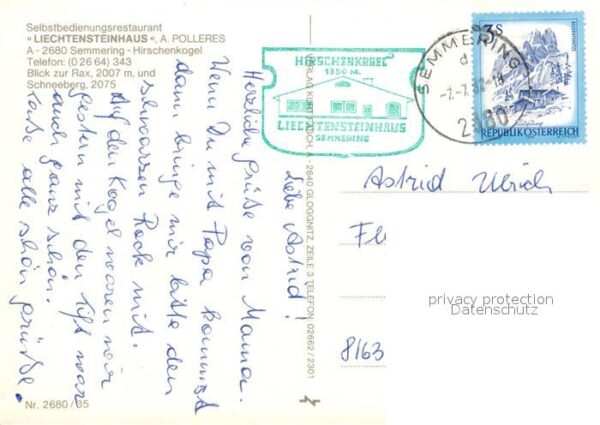 Selbstbedienungsrestaurant
"LIECHTENSTEINHAUS", A. POLLERES
A - 2680 Semmering - Hirschenkogel
Telefon: (0 26 64) 343
Blick zur Rax, 2007 m, und
Schneeberg, 2075
HIRSCHENKOGEL
1350 M.
LIECHTENSTEINHAUS
SEMMERING
SEMMERING
2680
3 S
REPUBLIK ÖSTERREICH
Liebe Astrid!
Herzliche Grüße von Mama.
Wenn Du mit Papa kommst
dann bringe mir bitte den
schwarzen Rock mit.
Auf den Kogel waren wir
gestern mit den Lift war
auch ganz schön.
lasse alle schön grüße.
2640 GLOGGNITZ, ZEILE 3 TELEFON 02662 / 2301
Astrid Ulrich
Fl
8163
privacy protection
Datenschutz
Nr. 2680 / 35